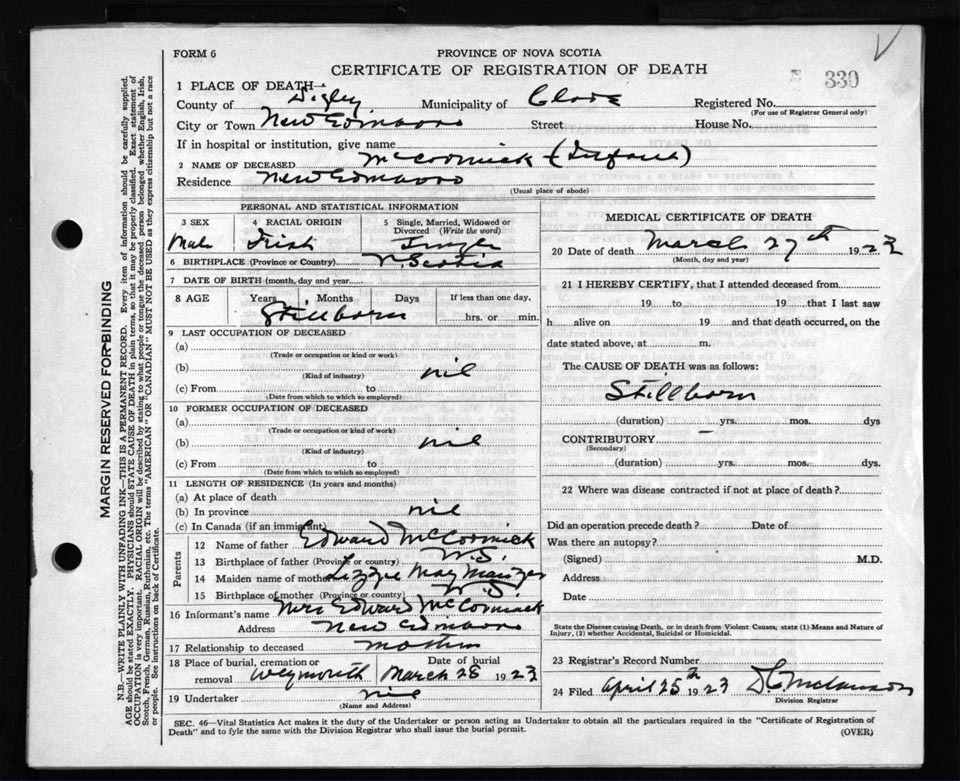 FORM 6
PROVINCE OF NOVA SCOTIA
CERTIFICATE OF REGISTRATION OF DEATH
330
1 PLACE OF DEATH
County of Digby Municipality of Clare Registered No.
(For use of Registrar General only)
City or Town New Edinboro Street House No.
If in hospital or institution, give name
2 NAME OF DECEASED McCormick (Infant)
Residence New Edinboro
(Usual place of abode)
PERSONAL AND STATISTICAL INFORMATION
3 SEX 4 RACIAL ORIGIN 5 Single, Married, Widowed or Divorced (Write the word)
Male Irish Single
6 BIRTHPLACE (Province or Country) N. Scotia
7 DATE OF BIRTH (month, day and year)
8 AGE Years Months Days If less than one day,
Stillborn hrs. or min.
9 LAST OCCUPATION OF DECEASED
(a)
(Trade or occupation or kind or work)
(b) nil
(Kind of industry)
(c) From to
(Date from which to which so employed)
10 FORMER OCCUPATION OF DECEASED
(a)
(Trade or occupation or kind of work)
(b) nil
(Kind of industry)
(c) From to
(Date from which to which so employed)
11 LENGTH OF RESIDENCE (In years and months)
(a) At place of death
(b) In province nil
(c) In Canada (if an immigrant)
Parents
12 Name of father Edward McCormick
13 Birthplace of father (Province or country) N.S.
14 Maiden name of mother Lizzie May
15 Birthplace of mother (Province or country) N.S.
16 Informant's name Mrs Edward McCormick
Address New Edinboro
17 Relationship to deceased mother
18 Place of burial, cremation or removal Weymouth Date of burial March 28 1923
19 Undertaker nil
(Name and Address)
MEDICAL CERTIFICATE OF DEATH
20 Date of death March 27th 1923
(Month, day and year)
21 I HEREBY CERTIFY, that I attended deceased from
19 to 19 that I last saw
h alive on 19 and that death occurred, on the
date stated above, at m.
The CAUSE OF DEATH was as follows:
Stillborn
(duration) yrs. mos. dys
CONTRIBUTORY –
(Secondary)
(duration) yrs. mos. dys.
22 Where was disease contracted if not at place of death?
Did an operation precede death? Date of
Was there an autopsy?
(Signed) M.D.
Address
Date
State the Disease causing Death, or in death from Violent Causes, state (1) Means and Nature of
Injury, (2) whether Accidental, Suicidal or Homicidal.
23 Registrar's Record Number
24 Filed April 25th 1923
Division Registrar
SEC. 46—Vital Statistics Act makes it the duty of the Undertaker or person acting as Undertaker to obtain all the particulars required in the "Certificate of Registration of
Death" and to fyle the same with the Division Registrar who shall issue the burial permit. (OVER)
MARGIN RESERVED FOR BINDING
N.B.—WRITE PLAINLY WITH UNFADING INK—THIS IS A PERMANENT RECORD. Every item of information should be carefully supplied.
AGE should be stated EXACTLY. PHYSICIANS should STATE CAUSE OF DEATH in plain terms, so that it may be properly classified. Exact statement of
OCCUPATION is very important. RACIAL ORIGIN will be described by stating to what people or tongue the deceased person belonged whether English, Irish,
Scotch, French, German, Russian, Ruthenian, etc. The terms "AMERICAN" OR "CANADIAN" MUST NOT BE USED as they express citizenship but not a race
or people. See instructions on back of Certificate.